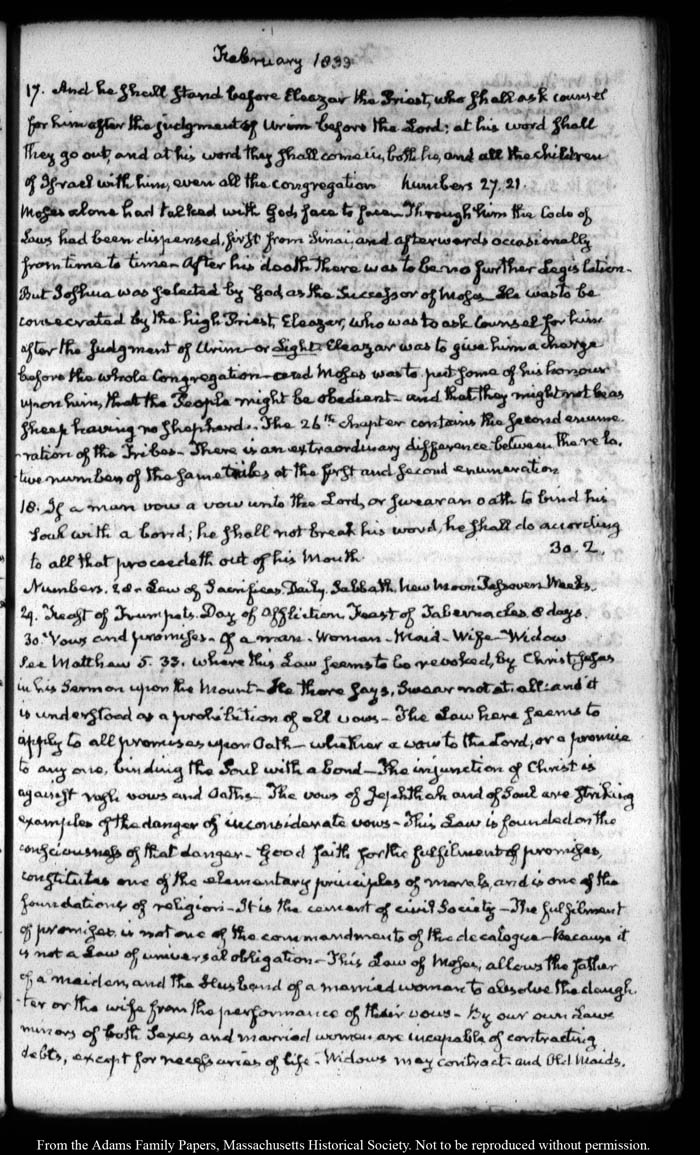 February 1833
17. And he shall stand before Eleazar the Priest, who shall ask counsel
for him after the judgment of Urim before the Lord: at his word shall
they go out, and at his word they shall come in, both he, and all the children
of Israel with him, even all the congregation Numbers 27. 21.
Moses alone had talked with God, face to face. Through him the Code of
Laws had been dispensed, first from Sinai, and afterwards occasionally
from time to time. After his death there was to be no further Legislation.
But Joshua was selected by God as the Successor of Moses. He was to be
consecrated by the high Priest, Eleazar, who was to ask Counsel for him
after the Judgment of Urim or Light. Eleazar was to give him a charge
before the whole Congregation and Moses was to put some of his honour
upon him, that the People might be obedient and that they might not be as
sheep having no shepherd. The 26th chapter contains the second enume-
-ration of the Tribes. There is an extraordinary difference between the rela-
tive numbers of the same tribes at the first and second enumeration
18. If a man vow a vow unto the Lord, or swear an oath to bind his
Soul with a bond; he shall not break his word, he shall do according
to all that proceedeth out of his Mouth. 30. 2.
Numbers. 28. Law of Sacrifices, Daily. Sabbath, New Moon Passover, Weeks.
29. Feast of Trumpets. Day of Affliction Feast of Tabernacles. 8 days.
30. Vows and promises. of a man. Woman. Maid. Wife. Widow
See Matthew 5. 33. where this Law seems to be revoked, by Christ Jesus
in his Sermon upon the Mount. He there says, Swear not at all: and it
is understood as a prohibition of all vows. The Law here seems to
apply to all promises upon Oath whether a vow to the Lord, or a promise
to any one, binding the Soul with a bond. The injunction of Christ is
against rash vows and Oaths. The vows of Jephthah and of Saul are striking
examples of the danger of inconsiderate vows. This Law is founded on the
consciousness of that danger. Good faith for the fulfilment of promises,
constitutes one of the elementary principles of morals, and is one of the
foundations of religion. It is the cement of civil Society. The fulfilment
of promises. is not one of the commandments of the decalogue. Because it
is not a Law of universal obligation. This Law of Moses, allows the father
of a maiden, and the Husband of a married woman to absolve the daugh-
-ter or the wife from the performance of their vows. By our own Laws
minors of both Sexes and married women are incapable of contracting
debts, except for necessaries of life. Widows may contract and Old Maids.
From the Adams Family Papers, Massachusetts Historical Society. Not to be reproduced without permission.